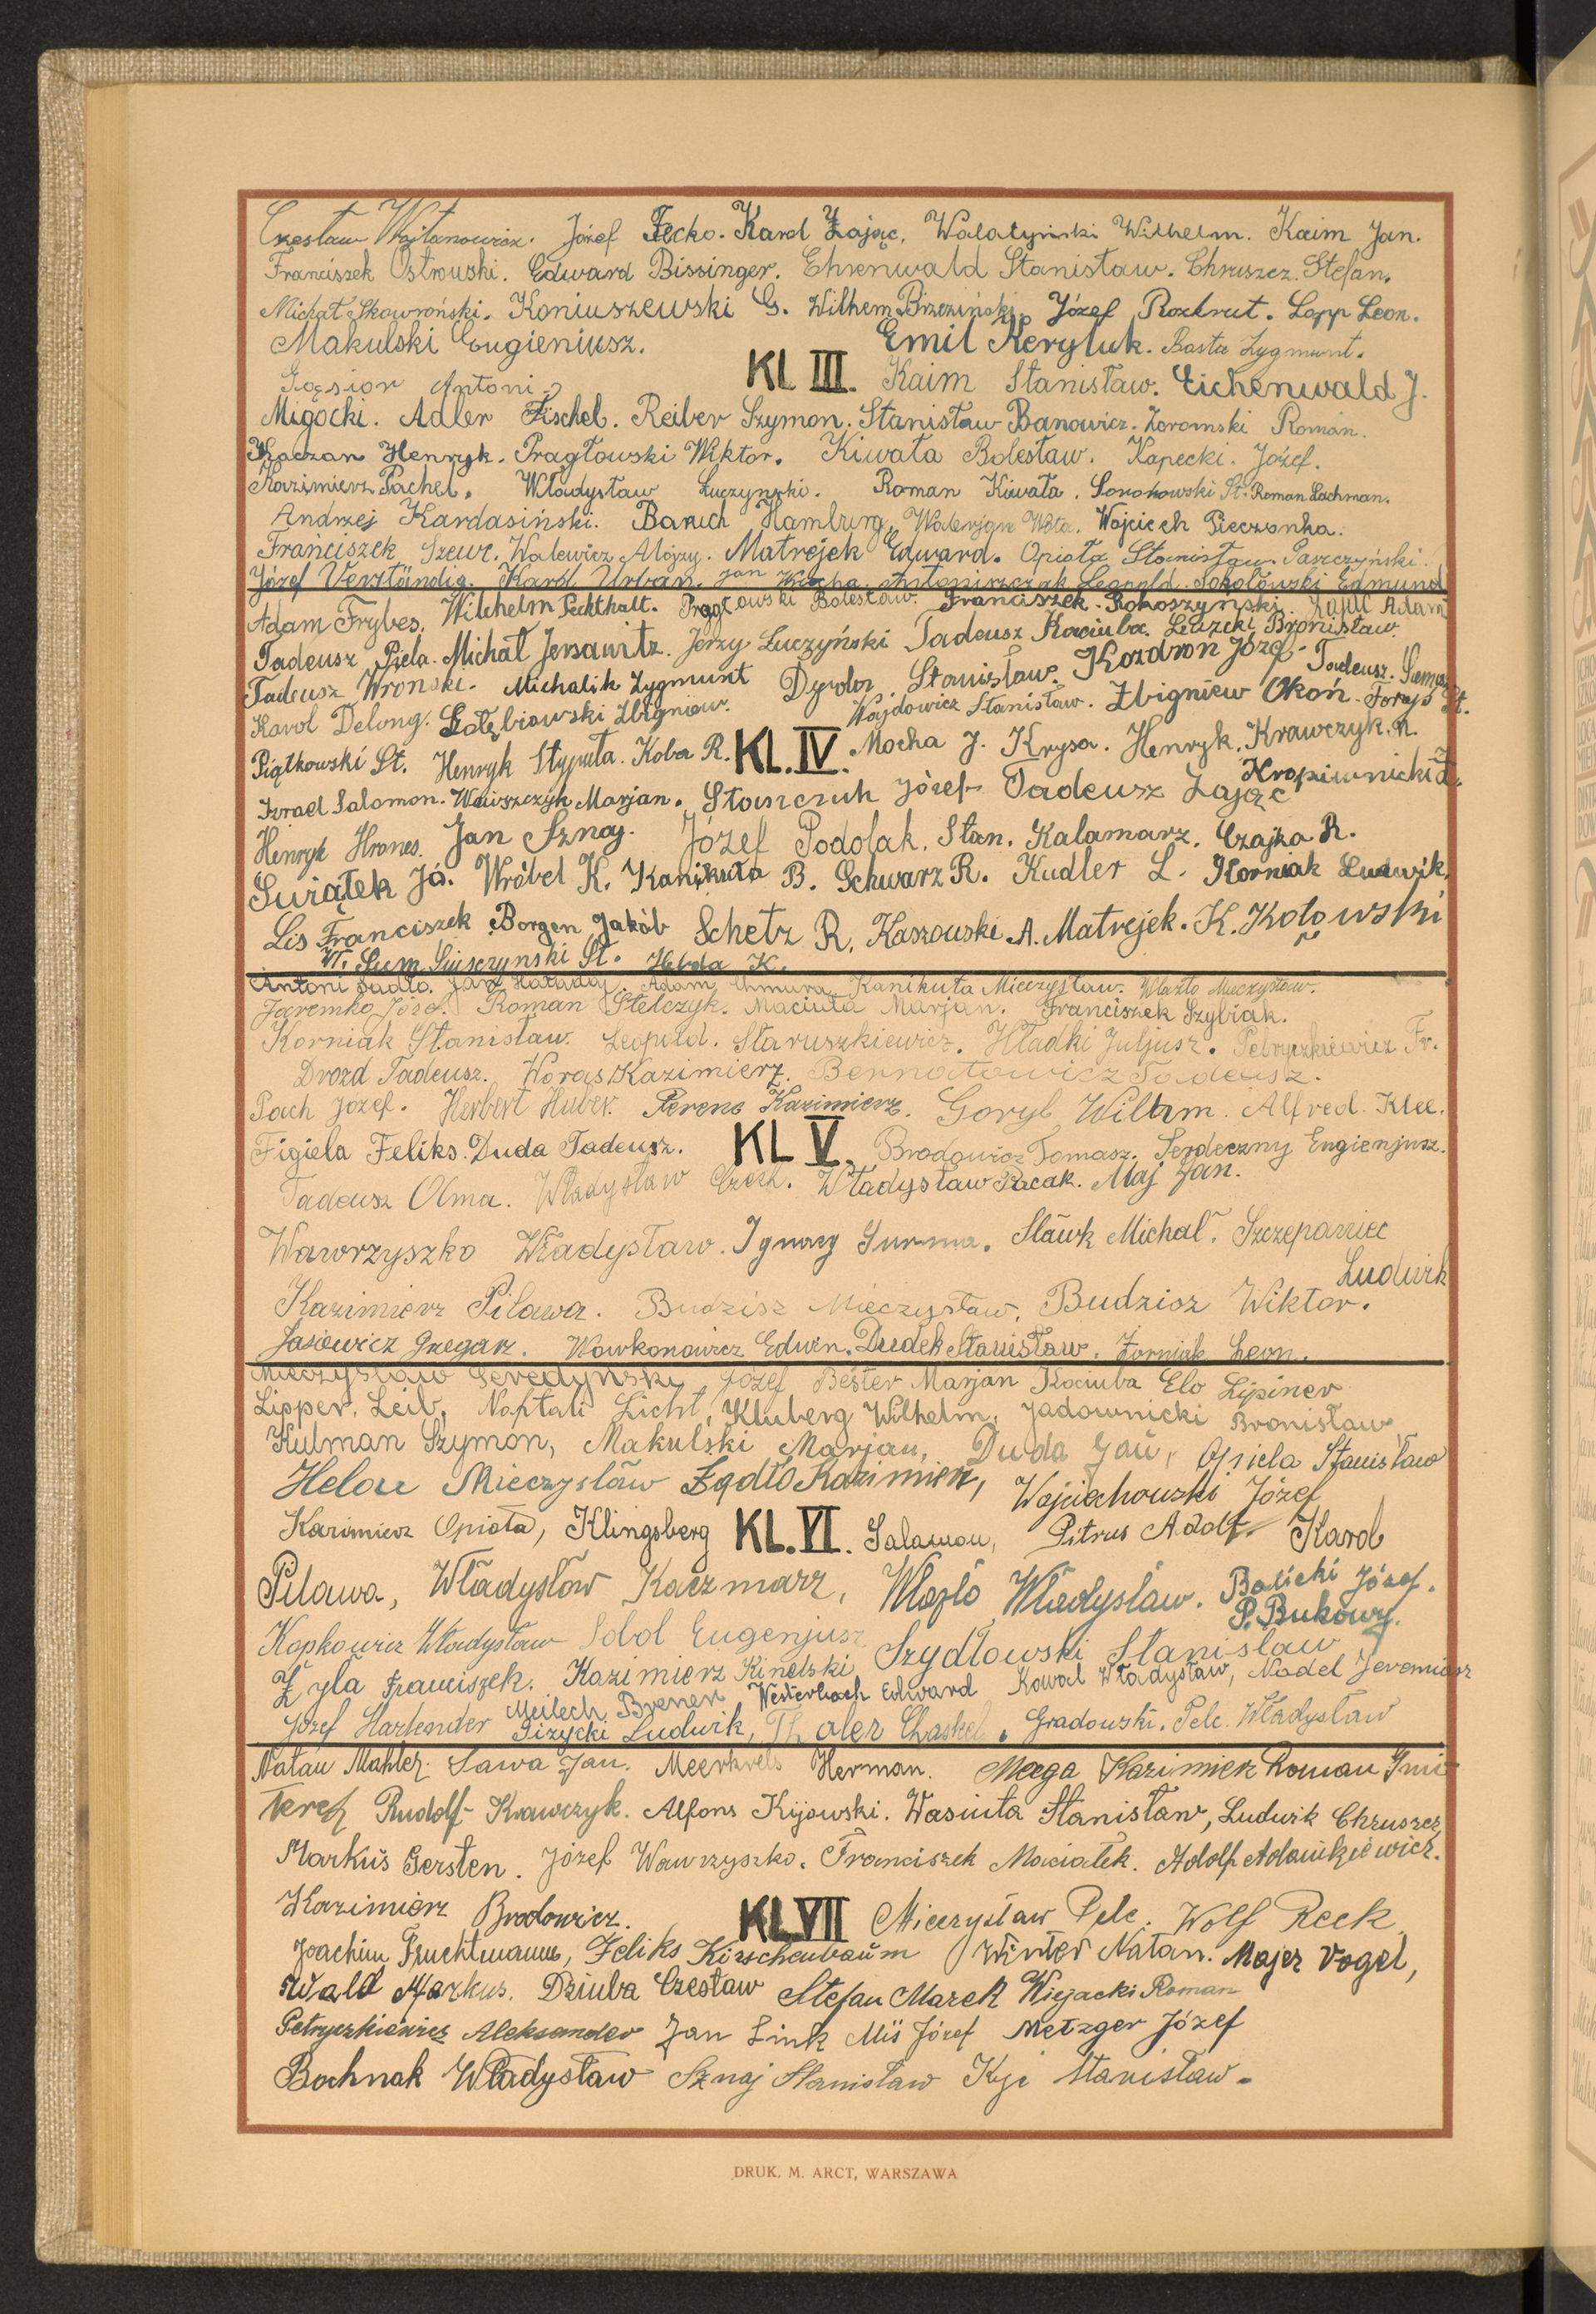 Czesław Wojtanowicz. Józef Fecko. Karol Zając. Walatyński Wilhelm. Kaim Jan.
Franciszek Ostrowski. Edward Bissinger. Ehrenwald Stanisław. Chruszcz Stefan.
Michał Skowroński. Koniuszewski G. Wilhem Brzeziński. Józef Roztrut. Lapp Leon.
Makulski Eugieniusz. Emil Keryluk. Basta Zygmunt.
Gąsior Antoni. KL III. Kaim Stanisław. Eichenwald J.
Migocki. Adler Fischel. Reiber Szymon. Stanisław Banowicz. Żoromski Roman.
Kaczan Henryk. Pragłowski Wiktor. Kiwała Bolesław. Kapecki. Józef.
Kazimierz Pachel. Władysław Łuczynski. Roman Kiwała. Sorokowski St. Roman Lachman.
Andrzej Kardasiński. Baruch Hamburg. Walerjan Wilta. Wojciech Pieczonka.
Franciszek Szewc. Walewicz Alojzy. Matrejek Edward. Opioła Stanisław. Paszczyński.
Józef Verständig. Karól Urban. Jan Kucha. Antoniszczak Leopold. Sokołowski Edmund
Adam Frybes. Wilchelm Peckthalt. Pragłowski Bolesław. Franciszek Rokoszyński. Zając Adam
Tadeusz Piela. Michał Jersawitz. Jerzy Łuczyński Tadeusz Kaciuba. Leuzeki Bronisław.
Tadeusz Wronski. Michalik Zygmunt Dyrdor Stanisław. Kozdron Józef. Tadeusz
Karol Delong. Gołębiowski Zbigniew. Wajdowicz Stanisław. Zbigniew Okoń. Foryś St.
Piątkowski St. Henryk Stypuła. Koba R. KL. IV. Mocha J. Krysa. Henryk. Krawczyk. R.
Izrael Salomon. Wawszczyk Marjan. Stanczuk Józef Tadeusz Zając Kropiwnicki Z.
Henryk Hrones. Jan Sznaj. Józef Podolak. Stan. Kalamarz. Czajka R.
Świątek Jó. Wróbel K. Kanikuła B. Schwarz R. Kudler L. Korniak Ludwik.
Lis Franciszek Borgen Jakób Schetz R. Kaszowski A. Matrejek. K. Kotowski
W. Sum Świszczynski St. Hebda K.
Antoni Sadło. Jan Haładaj. Adam Chmura. Kanikuła Mieczysław. Wlazło Mieczysław.
Jaremko Józef. Roman Stelczyk. Maciuta Marjan. Franciszek Szybiak.
Korniak Stanisław. Leopold. Staruszkiewicz. Hładki Juljusz. Petryszkiewicz Fr.
Drozd Tadeusz. Worąs Kazimierz. Bernatowicz Tadeusz.
Pach Józef. Herbert Huber. Perenc Kazimierz. Goryl Wilhm. Alfred. Klee.
Figiela Feliks. Duda Tadeusz. KL V. Brodowicz Tomasz. Serdeczny Engienjusz.
Tadeusz Olma. Władysław Czech. Władysław Pacak. Maj Jan.
Wawrzyszko Władysław. Ignacy Surma. Sławk Michał. Szczepaniec
Ludwik
Kazimierz Pilawa. Budzisz Mieczysław. Budzisz Wiktor.
Jasiewicz Gregarz. Wowkonowicz Edwin. Dudek Stanisław. Żorniak Leon.
Mieczysław Seredyński Józef Bester Marjan Kaciuba Elo Lipiner
Lipper. Leib. Naftali Licht, Kluberg Wilhelm, Jadownicki Bronisław,
Kulman Szymon, Makulski Marjan, Duda Jan, Opiela Stanisław
Helon Mieczysław Żądło Kazimierz, Wojciechowski Józef
Kazimierz Opioła, Klingsberg KL. VI. Salamon, Pitrus Adolf Karol
Pilawa, Władysław Kaczmarz, Wlazło Władysław. Balicki Józef.
P. Bukowy.
Kopkowicz Władysław Sobol Eugenjusz Szydłowski Stanisław
Żyła Franciszek. Kazimierz Kinelski Westerbach Edward Kowal Władysław, Nadel Jeremiasz
Józef Harlender Meilech Brener Piżycki Ludwik, Thaler Chaskel. Gradowski. Pelc. Władysław
Natan Mahler. Sawa Jan. Meerkrebs Herman. Meega Kazimierz Roman Smi-
terej Rudolf Krawczyk. Alfons Kijowski. Wasiuta Stanisław, Ludwik Chruszcz,
Markus Gersten. Józef Wawrzyszko. Franciszek Maciałek. Adolf Adamkiewicz.
Kazimierz Brodowicz. KL VII Mieczysław Pelc. Wolf Reck,
Joachim Fruchtmann, Feliks Kirschenbaum Winter Natan. Majer Vogel,
Wald Markus. Dziuba Czesław Stefan Marek Wijacki Roman
Petryszkiewicz Aleksander Jan Link Miś Józef Metzger Józef
Bochnak Władysław Sznaj Stanisław Kyc Stanisław.
DRUK. M. ARCT, WARSZAWA